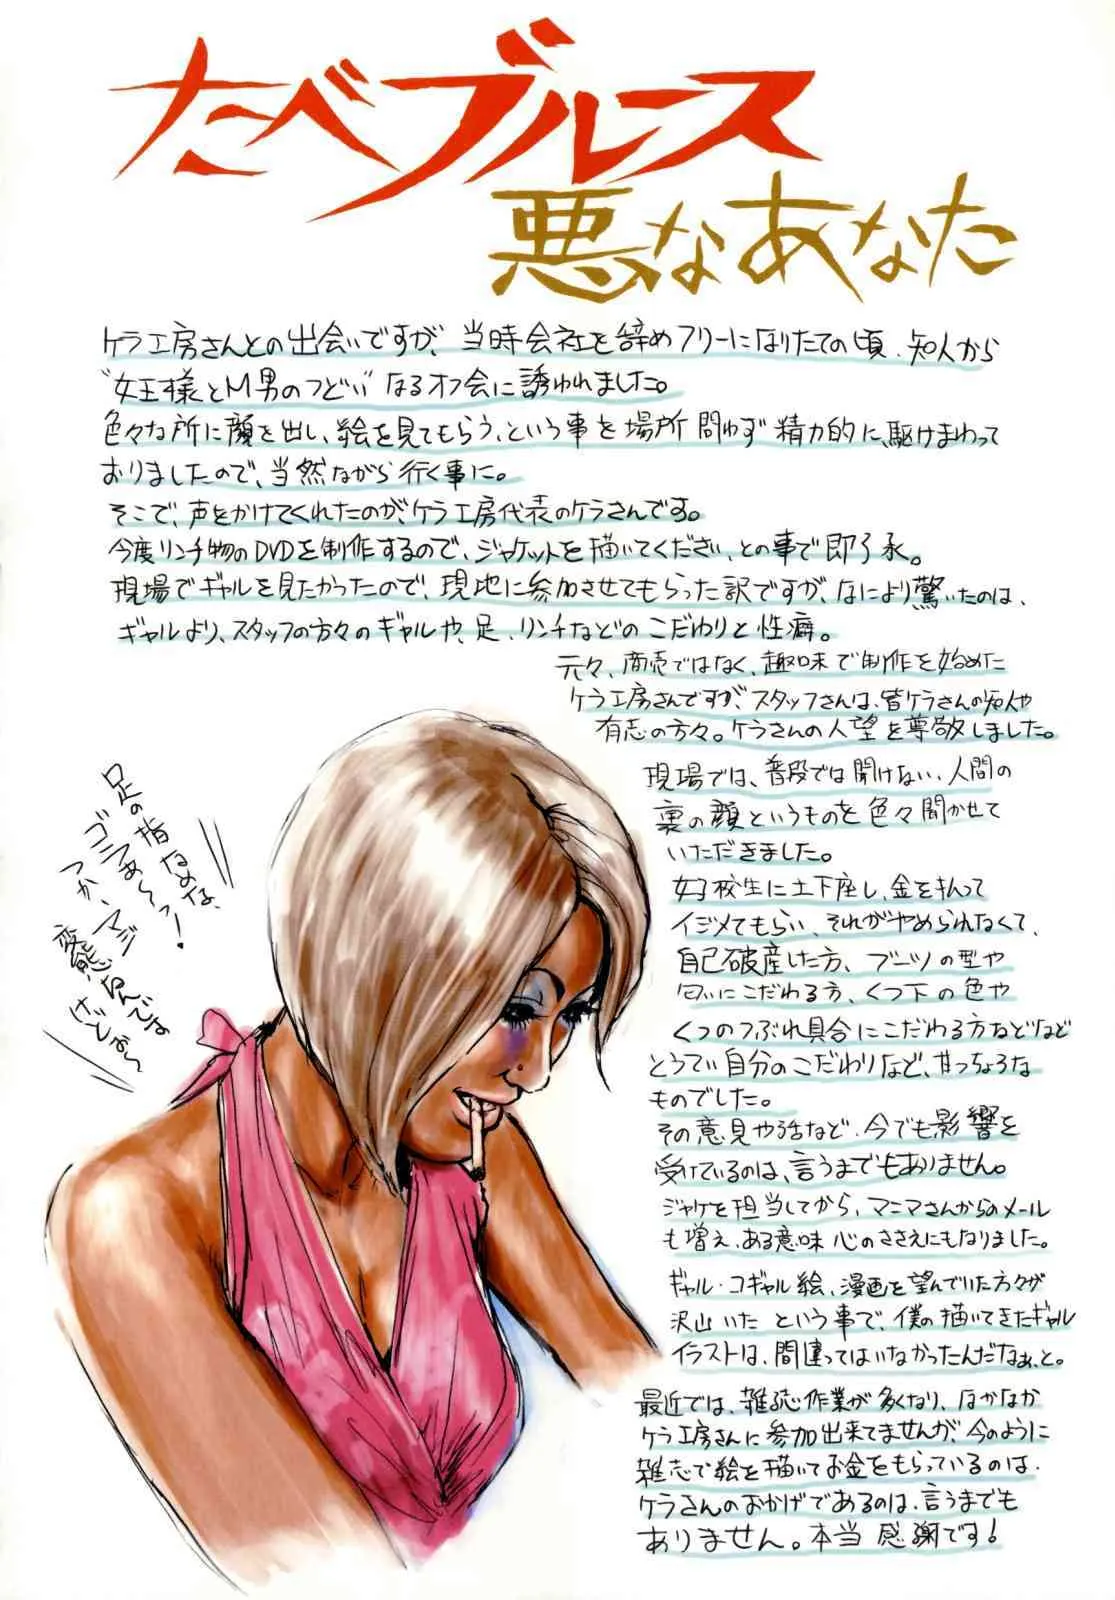 たべブルース
悪なあなた
ケラ工房さんとの出会いですが、当時会社を辞めフリーになりたての頃、知人から
"女王様とM男のつどい"なるオフ会に誘われました。
色々な所に顔を出し、絵を見てもらう、という事を場所問わず精力的に、駆けまわって
おりましたので、当然ながら行く事に。
そこで、声をかけてくれたのが、ケラ工房代表のケラさんです。
今度リンチ物のDVDを制作するので、ジャケットを描いてください、との事で即了承。
現場でギャルを見たかったので、現地に参加させてもらった訳ですが、なにより驚いたのは、
ギャルより、スタッフの方々のギャルや、足、リンチなどのこだわりと性癖。
元々、商売ではなく、趣味で制作を始めた
ケラ工房さんですが、スタッフさんは、皆ケラさんの知人や
有志の方々。ケラさんの人望を尊敬しました。
現場では、普段では聞けない、人間の
裏の顔というものを色々聞かせて
いただきました。
女子校生に土下座し、金を払って
イジメてもらい、それがやめられなくて、
自己破産した方、ブーツの型や
匂いにこだわる方、くつ下の色や
くつのつぶれ具合にこだわる方などなど
とうてい自分のこだわりなど、甘っちょろな
ものでした。
その意見や話など、今でも影響を
受けているのは、言うまでもありません。
ジャケを担当してから、マニマさんからのメール
も増え、ある意味心のささえにもなりました。
ギャル・コギャル絵、漫画を望んでいた方々が
沢山いたという事で、僕の描いてきたギャル
イラストは、間違ってはいなかったんだなぁ、と。
最近では、雑誌作業が多くなり、なかなか
ケラ工房さんに参加出来てませんが、今のように
雑志で絵を描いてお金をもらっているのは、
ケラさんのおかげであるのは、言うまでも
ありません。本当感謝です!
足の指なめな、
ゴラァ〜っ!
つか、マジ
変態なんですけどぉ〜